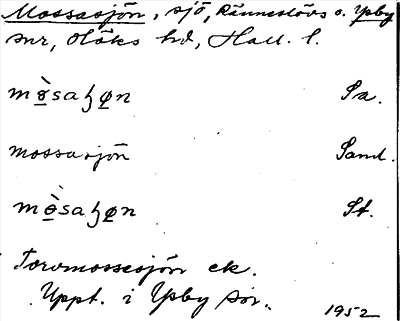 Mossasjön, sjö, Ränneslövs o. Ysby
snr, Höks hd, Hall. l.
mɵ̀saɧøn Sa.
mossasjön Sand.
mɵ̀saɧøn St.
Torvmossesjön ek.
Uppt. i Ysby sn.
1952